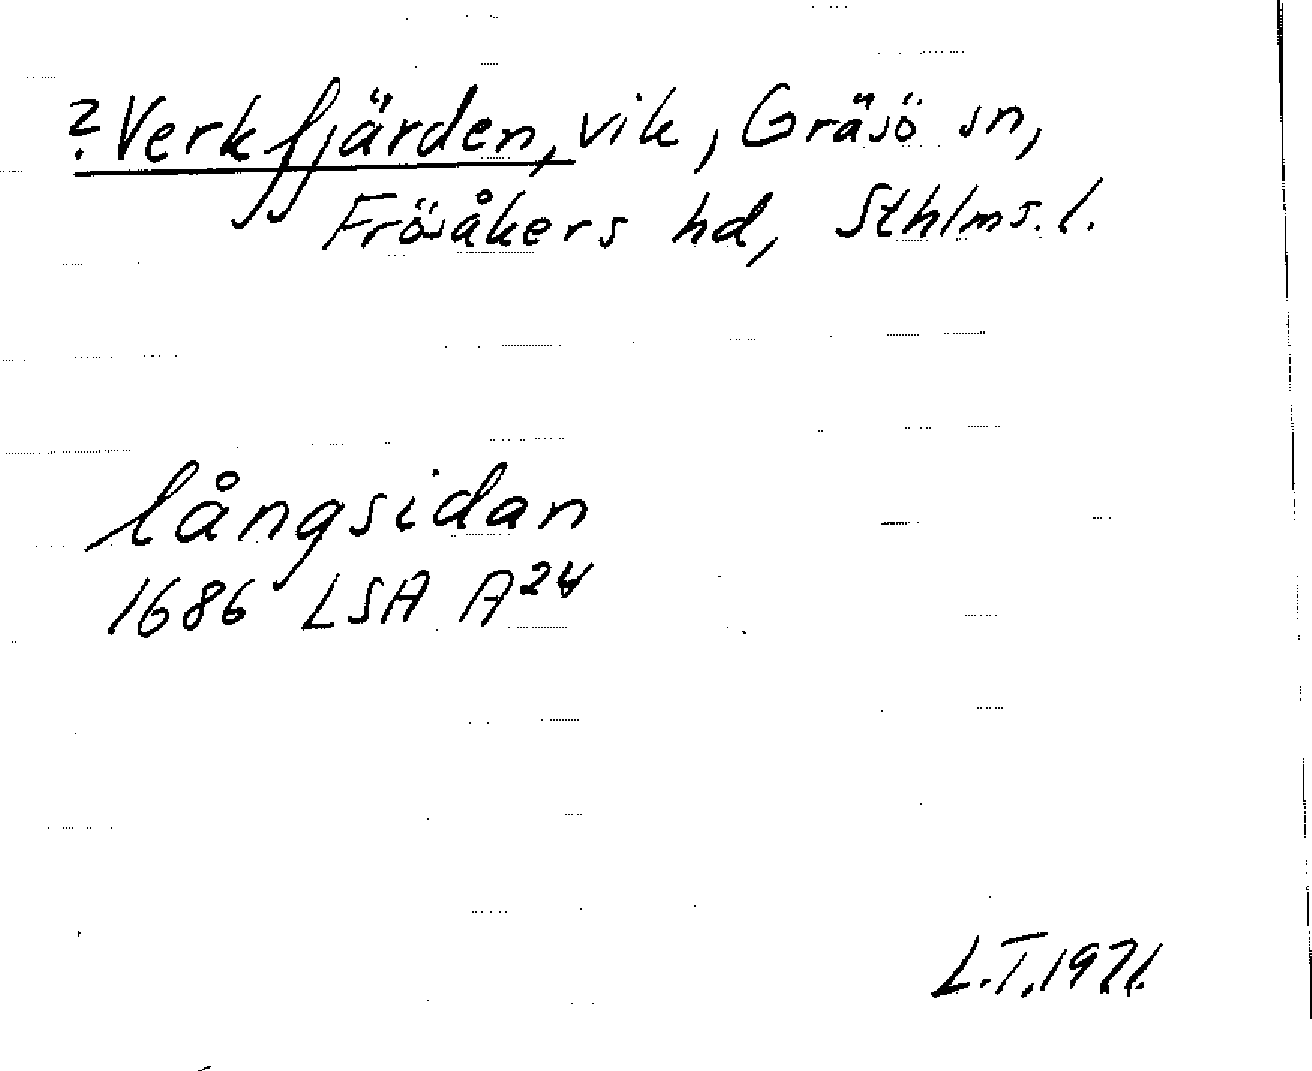 ? Verkfjärden, vik, Gräsö sn,
Frösåkers hd, Sthlms. l.
långsidan
1686 LSA A24
L.T. 1971.